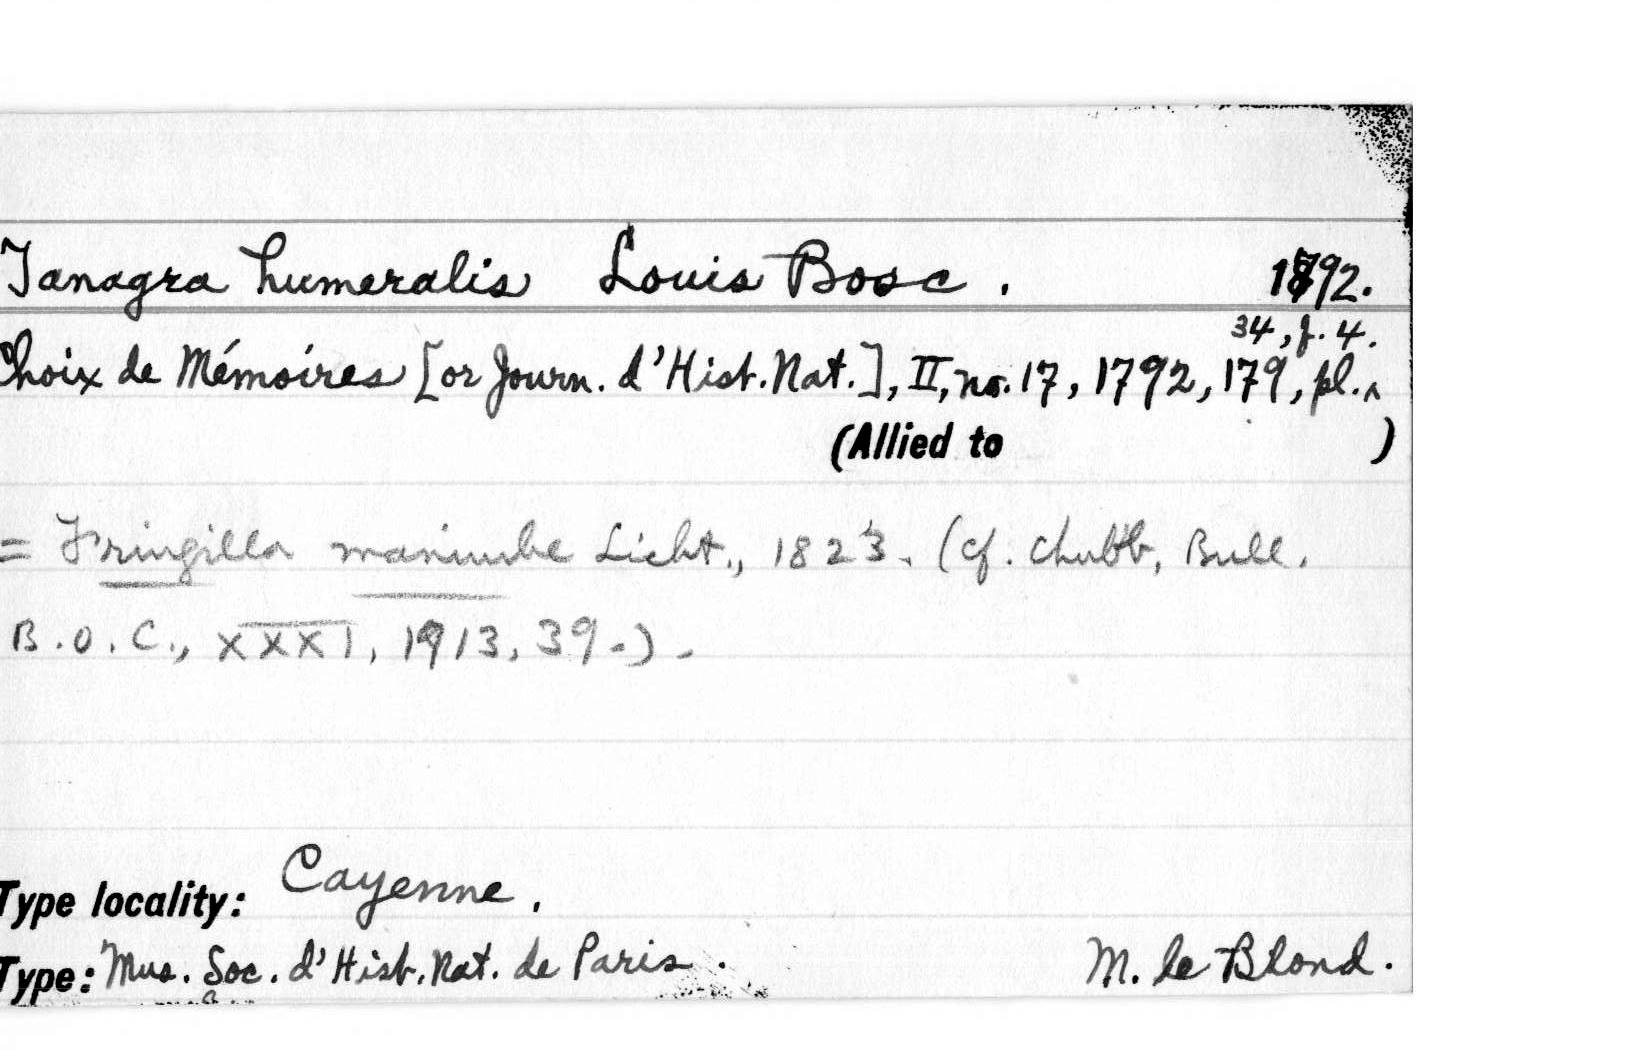 Tanagra humeralis Louis Bosc. 1792.
34, f. 4.
Choix de Mémoires [or Journ. d'Hist. Nat.], II, no. 17, 1792, 179, pl. ^
(Allied to )
= Fringilla manimbe Licht., 1823. (cf. Chubb, Bull.
B.O.C., XXXI, 1913, 39.).
Type locality: Cayenne.
Type: Mus. Soc. d'Hist. Nat. de Paris. M. le Blond.